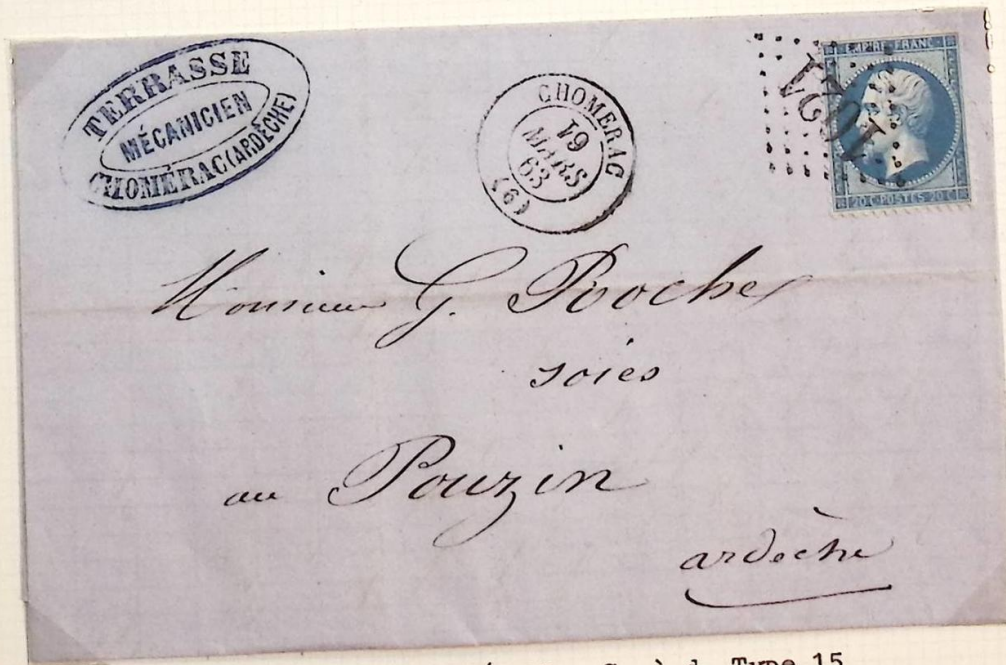 TERRASSE
MÉCANICIEN
CHOMÉRAC (ARDÈCHE)
CHOMERAC
19
MARS
63
(6)
EMPIRE FRANC
1021
20 C POSTES 20 C
Monsieur G. Roche
soies
au Pouzin
ardèche
Type 15